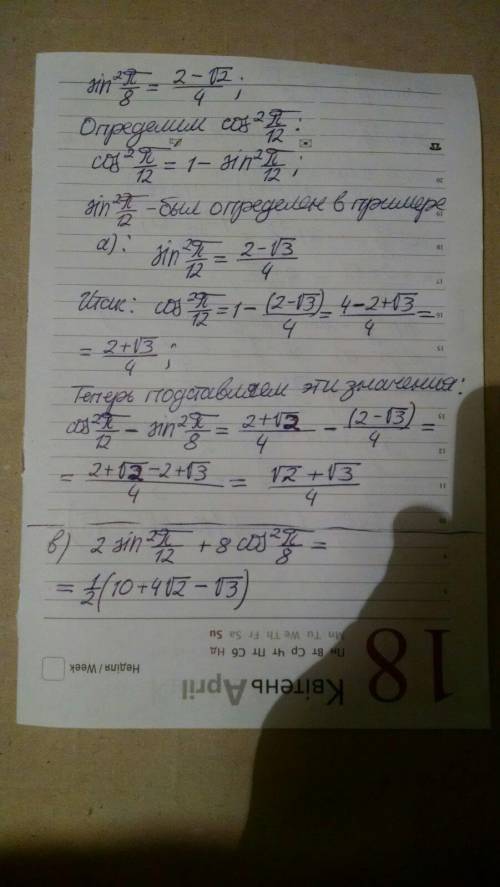 sin²π/8 = (2-√2)/4 ;
Определим cos²π/12 :
cos²π/12 = 1 - sin²π/12 ;
sin²π/12 - был определен в примере
а): sin²π/12 = (2-√3)/4
Итак: cos²π/12 = 1 - (2-√3)/4 = (4-2+√3)/4 =
= (2+√3)/4 ;
Теперь подставляем эти значения:
cos²π/12 - sin²π/8 = (2+√2)/4 - (2-√3)/4 =
= (2+√2-2+√3)/4 = (√2+√3)/4
в) 2 sin²π/12 + 8 cos²π/8 =
= 1/2(10+4√2-√3)
18
Пн Вт Ср Чт Пт Сб Нд
Mn Tu We Th Fr Sa Su
Квітень April
Неділя / Week